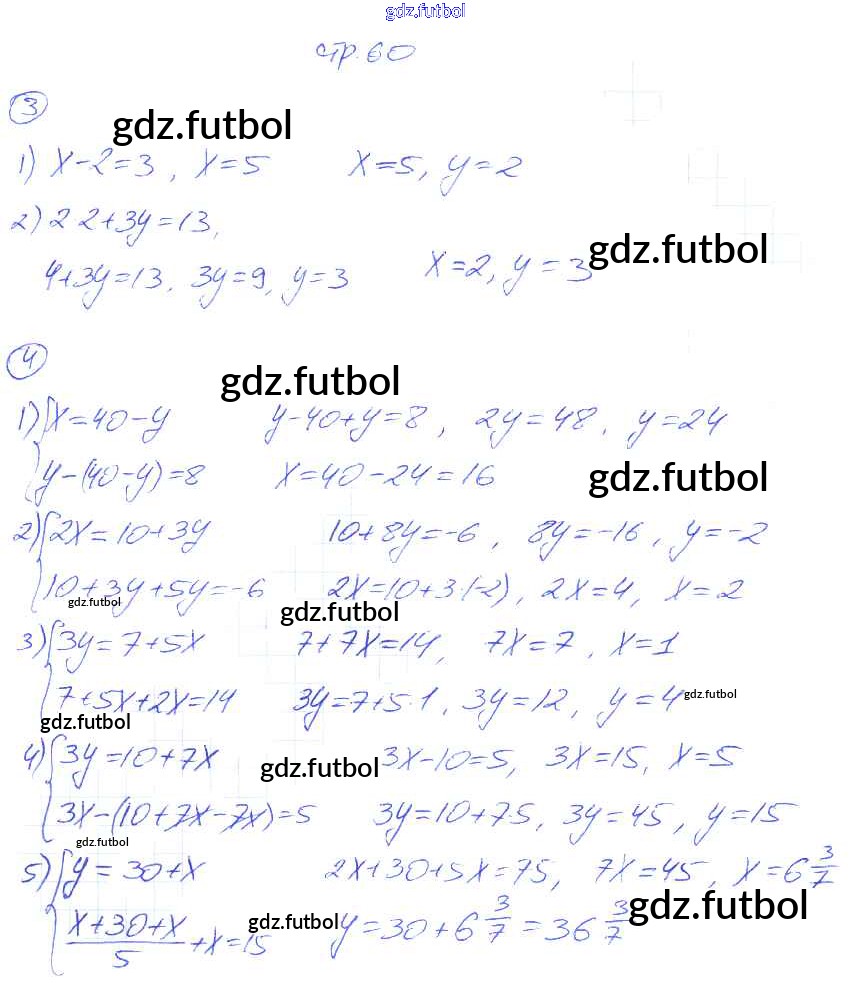 gdz.futbol
стр. 60
3
gdz.futbol
1) x-2=3, x=5 x=5, y=2
2) 2 2+3y=13,
gdz.futbol
4+3y=13, 3y=9, y=3 x=2, y=3
4
gdz.futbol
1) {x=40-y y-40+y=8, 2y=48, y=24
y-(40-y)=8 x=40-24=16
gdz.futbol
2) {2x=10+3y 10+8y=-6, 8y=-16, y=-2
10+3y+5y=-6 2x=10+3·(-2), 2x=4, x=2
gdz.futbol
gdz.futbol
3) {3y=7+5x 7+7x=14, 7x=7, x=1
7+5x+2x=14 3y=7+5·1, 3y=12, y=4
gdz.futbol
gdz.futbol
4) {3y=10+7x 3x-10=5, 3x=15, x=5
gdz.futbol
3x-(10+7x-7x)=5 3y=10+7·5, 3y=45, y=15
gdz.futbol
5) {y=30+x 2x+30+5x=75, 7x=45, x=6 3/7
(x+30+x)/5+x=15 y=30+6 3/7=36 3/7
gdz.futbol
gdz.futbol